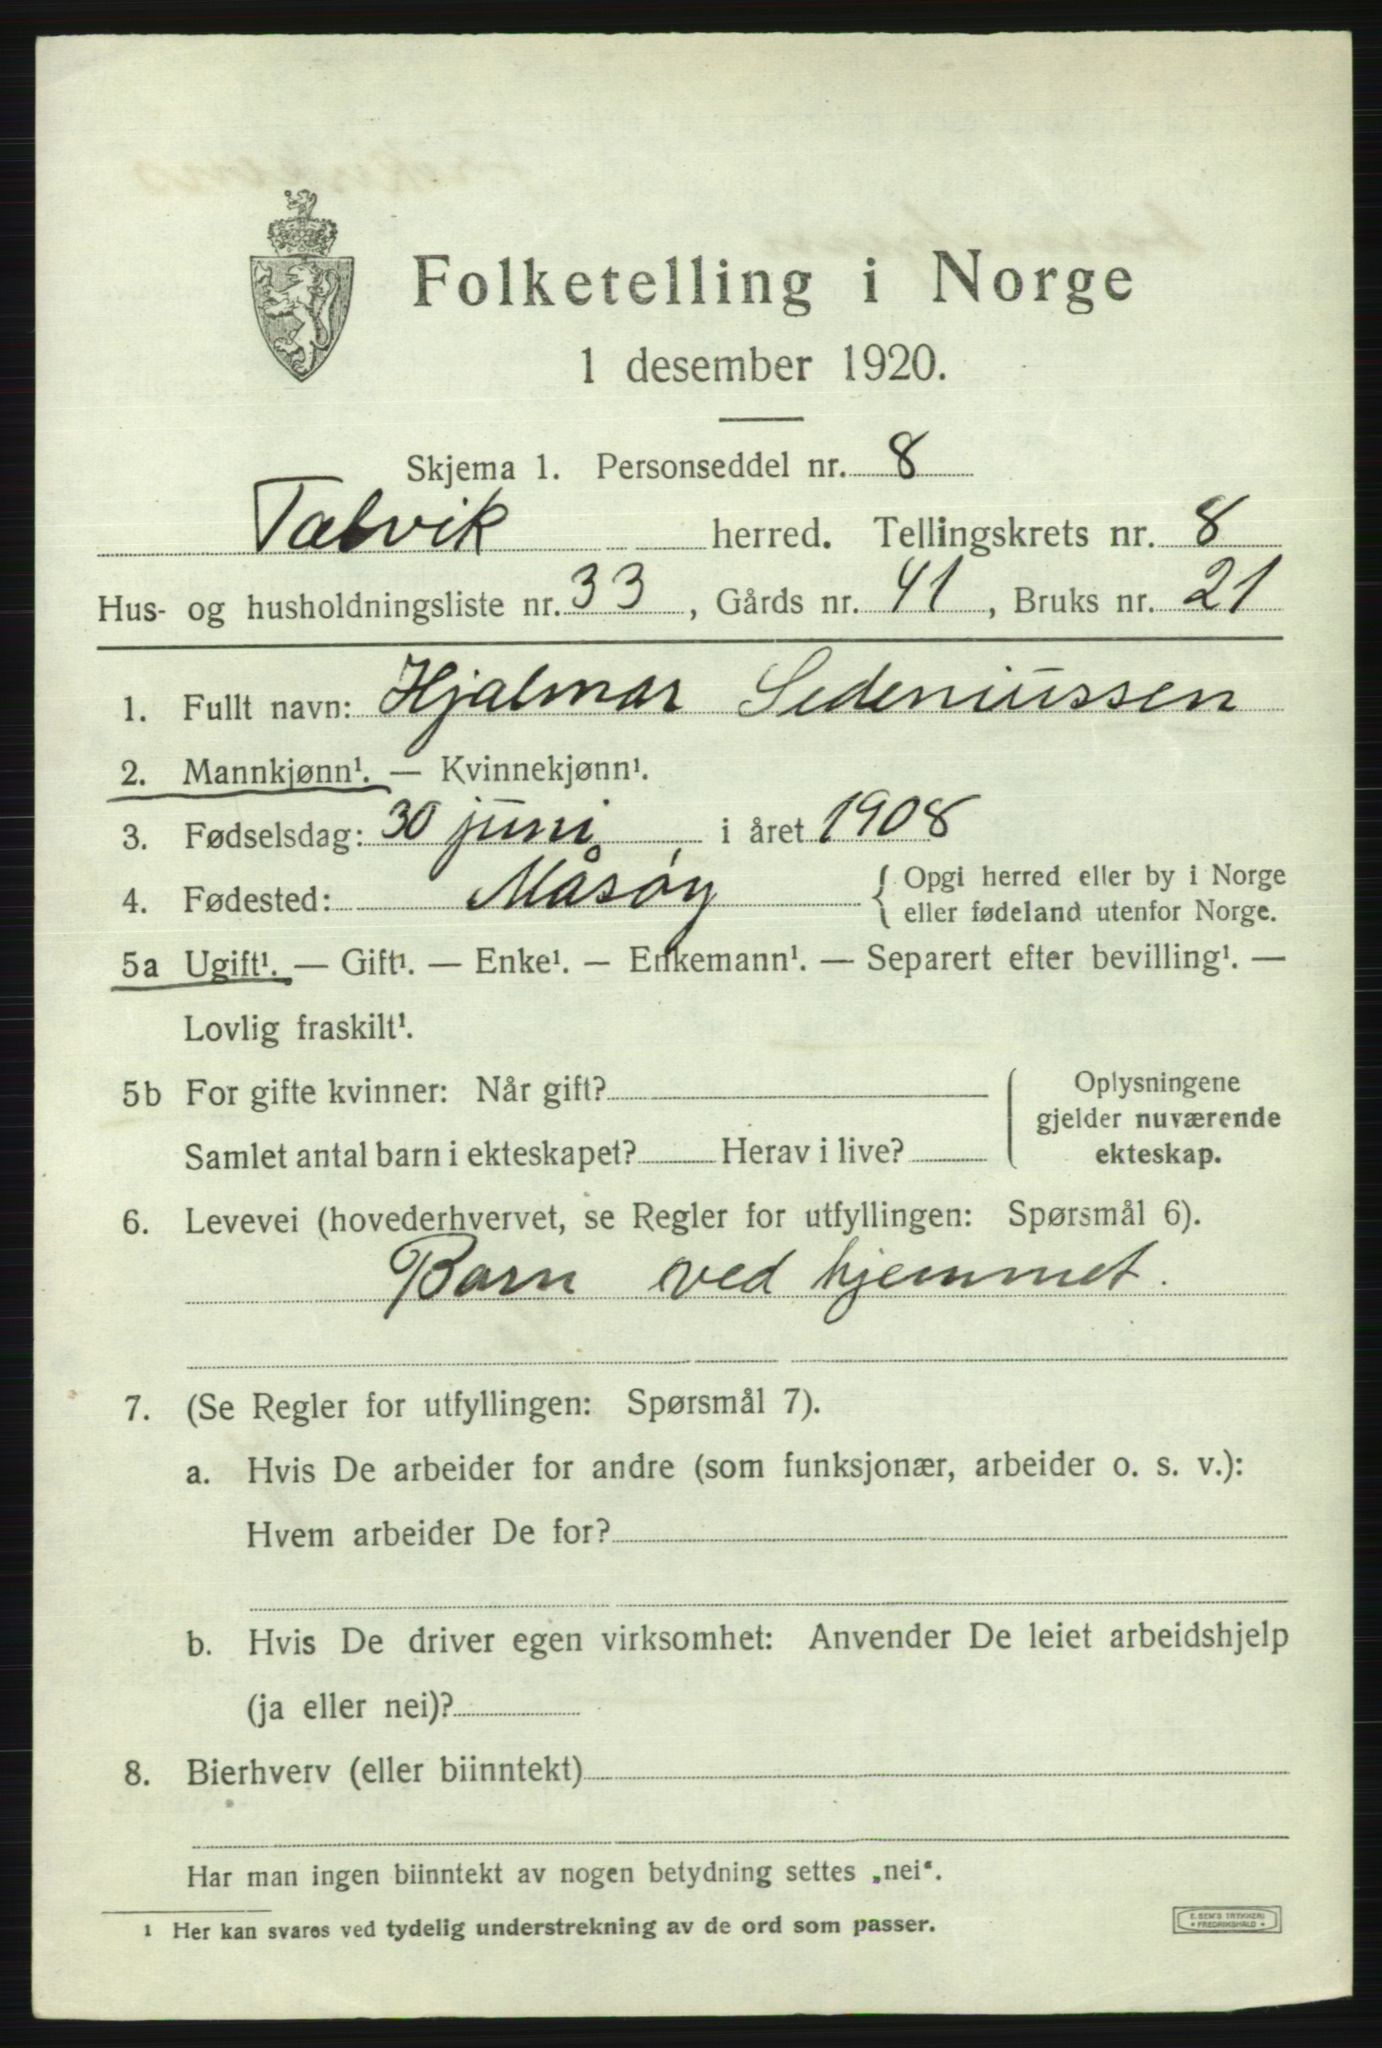 Folketelling i Norge
1 desember 1920.
Skjema 1. Personseddel nr. 8
Talvik herred. Tellingskrets nr. 8
Hus- og husholdningsliste nr. 33, Gårds nr. 41, Bruks nr. 21
1. Fullt navn: Hjalmar Sedeniussen
2. Mannkjønn¹. — Kvinnekjønn¹.
3. Fødselsdag: 30 juni i året 1908
4. Fødested: Måsøy { Opgi herred eller by i Norge
eller fødeland utenfor Norge.
5a Ugift¹. — Gift¹. — Enke¹. — Enkemann¹. — Separert efter bevilling¹. —
Lovlig fraskilt¹.
5b For gifte kvinner: Når gift?
Samlet antal barn i ekteskapet? Herav i live?
Oplysningene
gjelder nuværende
ekteskap.
6. Levevei (hovederhvervet, se Regler for utfyllingen: Spørsmål 6).
Barn ved hjemmet.
7. (Se Regler for utfyllingen: Spørsmål 7).
a. Hvis De arbeider for andre (som funksjonær, arbeider o. s. v.):
Hvem arbeider De for?
b. Hvis De driver egen virksomhet: Anvender De leiet arbeidshjelp
(ja eller nei)?
8. Bierhverv (eller biinntekt)
Har man ingen biinntekt av nogen betydning settes „nei“.
1 Her kan svares ved tydelig understrekning av de ord som passer.
E. SEM'S TRYKKERI
* FREDRIKSHALD *